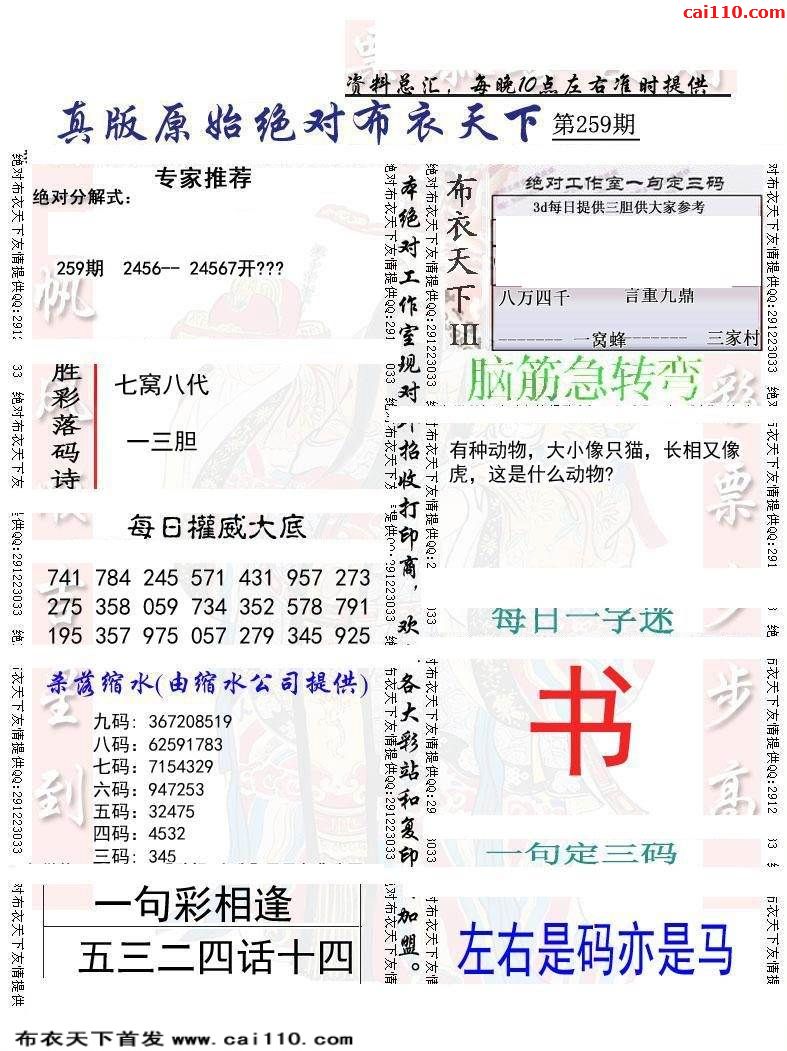 cai110.com
资料总汇，每晚10点左右准时提供
真版原始绝对布衣天下 第259期
专家推荐
绝对分解式：
259期 2456-- 24567开???
胜彩落码诗
七窝八代
一三胆
每日權威大底
741 784 245 571 431 957 273
275 358 059 734 352 578 791
195 357 975 057 279 345 925
杀落缩水(由缩水公司提供)
九码: 367208519
八码: 62591783
七码: 7154329
六码: 947253
五码: 32475
四码: 4532
三码: 345
一句彩相逢
五三二四话十四
绝对布衣天下友情提供QQ:291223033
本绝对工作室现对外招收打印商，欢
各大彩站和复印
加盟。
布衣天下III
绝对工作室一句定三码
3d每日提供三胆供大家参考
八万四千 言重九鼎
-------- 一窝蜂------- 三家村
脑筋急转弯
有种动物，大小像只猫，长相又像
虎，这是什么动物?
每日一字迷
书
一句定三码
左右是码亦是马
布衣天下首发 www.cai110.com